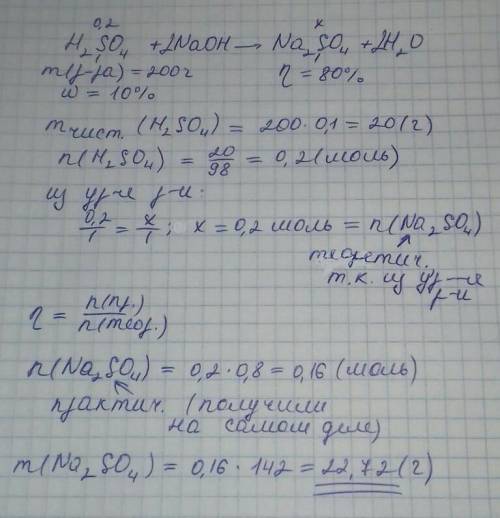 0,2 x
H₂SO₄ + 2NaOH → Na₂SO₄ + 2H₂O
1 1
m(р-ра) = 200г η = 80%
ω = 10%
m чист. (H₂SO₄) = 200·0,1 = 20(г)
n(H₂SO₄) = 20/98 = 0,2(моль)
из ур-я р-и:
0,2/1 = x/1; x = 0,2 моль = n(Na₂SO₄)
теоретич.
т.к. из ур-я
р-и
η = n(пр.)/n(теор.)
n(Na₂SO₄) = 0,2·0,8 = 0,16 (моль)
практич. (получили
на самом деле)
m(Na₂SO₄) = 0,16·142 = 22,72(г)